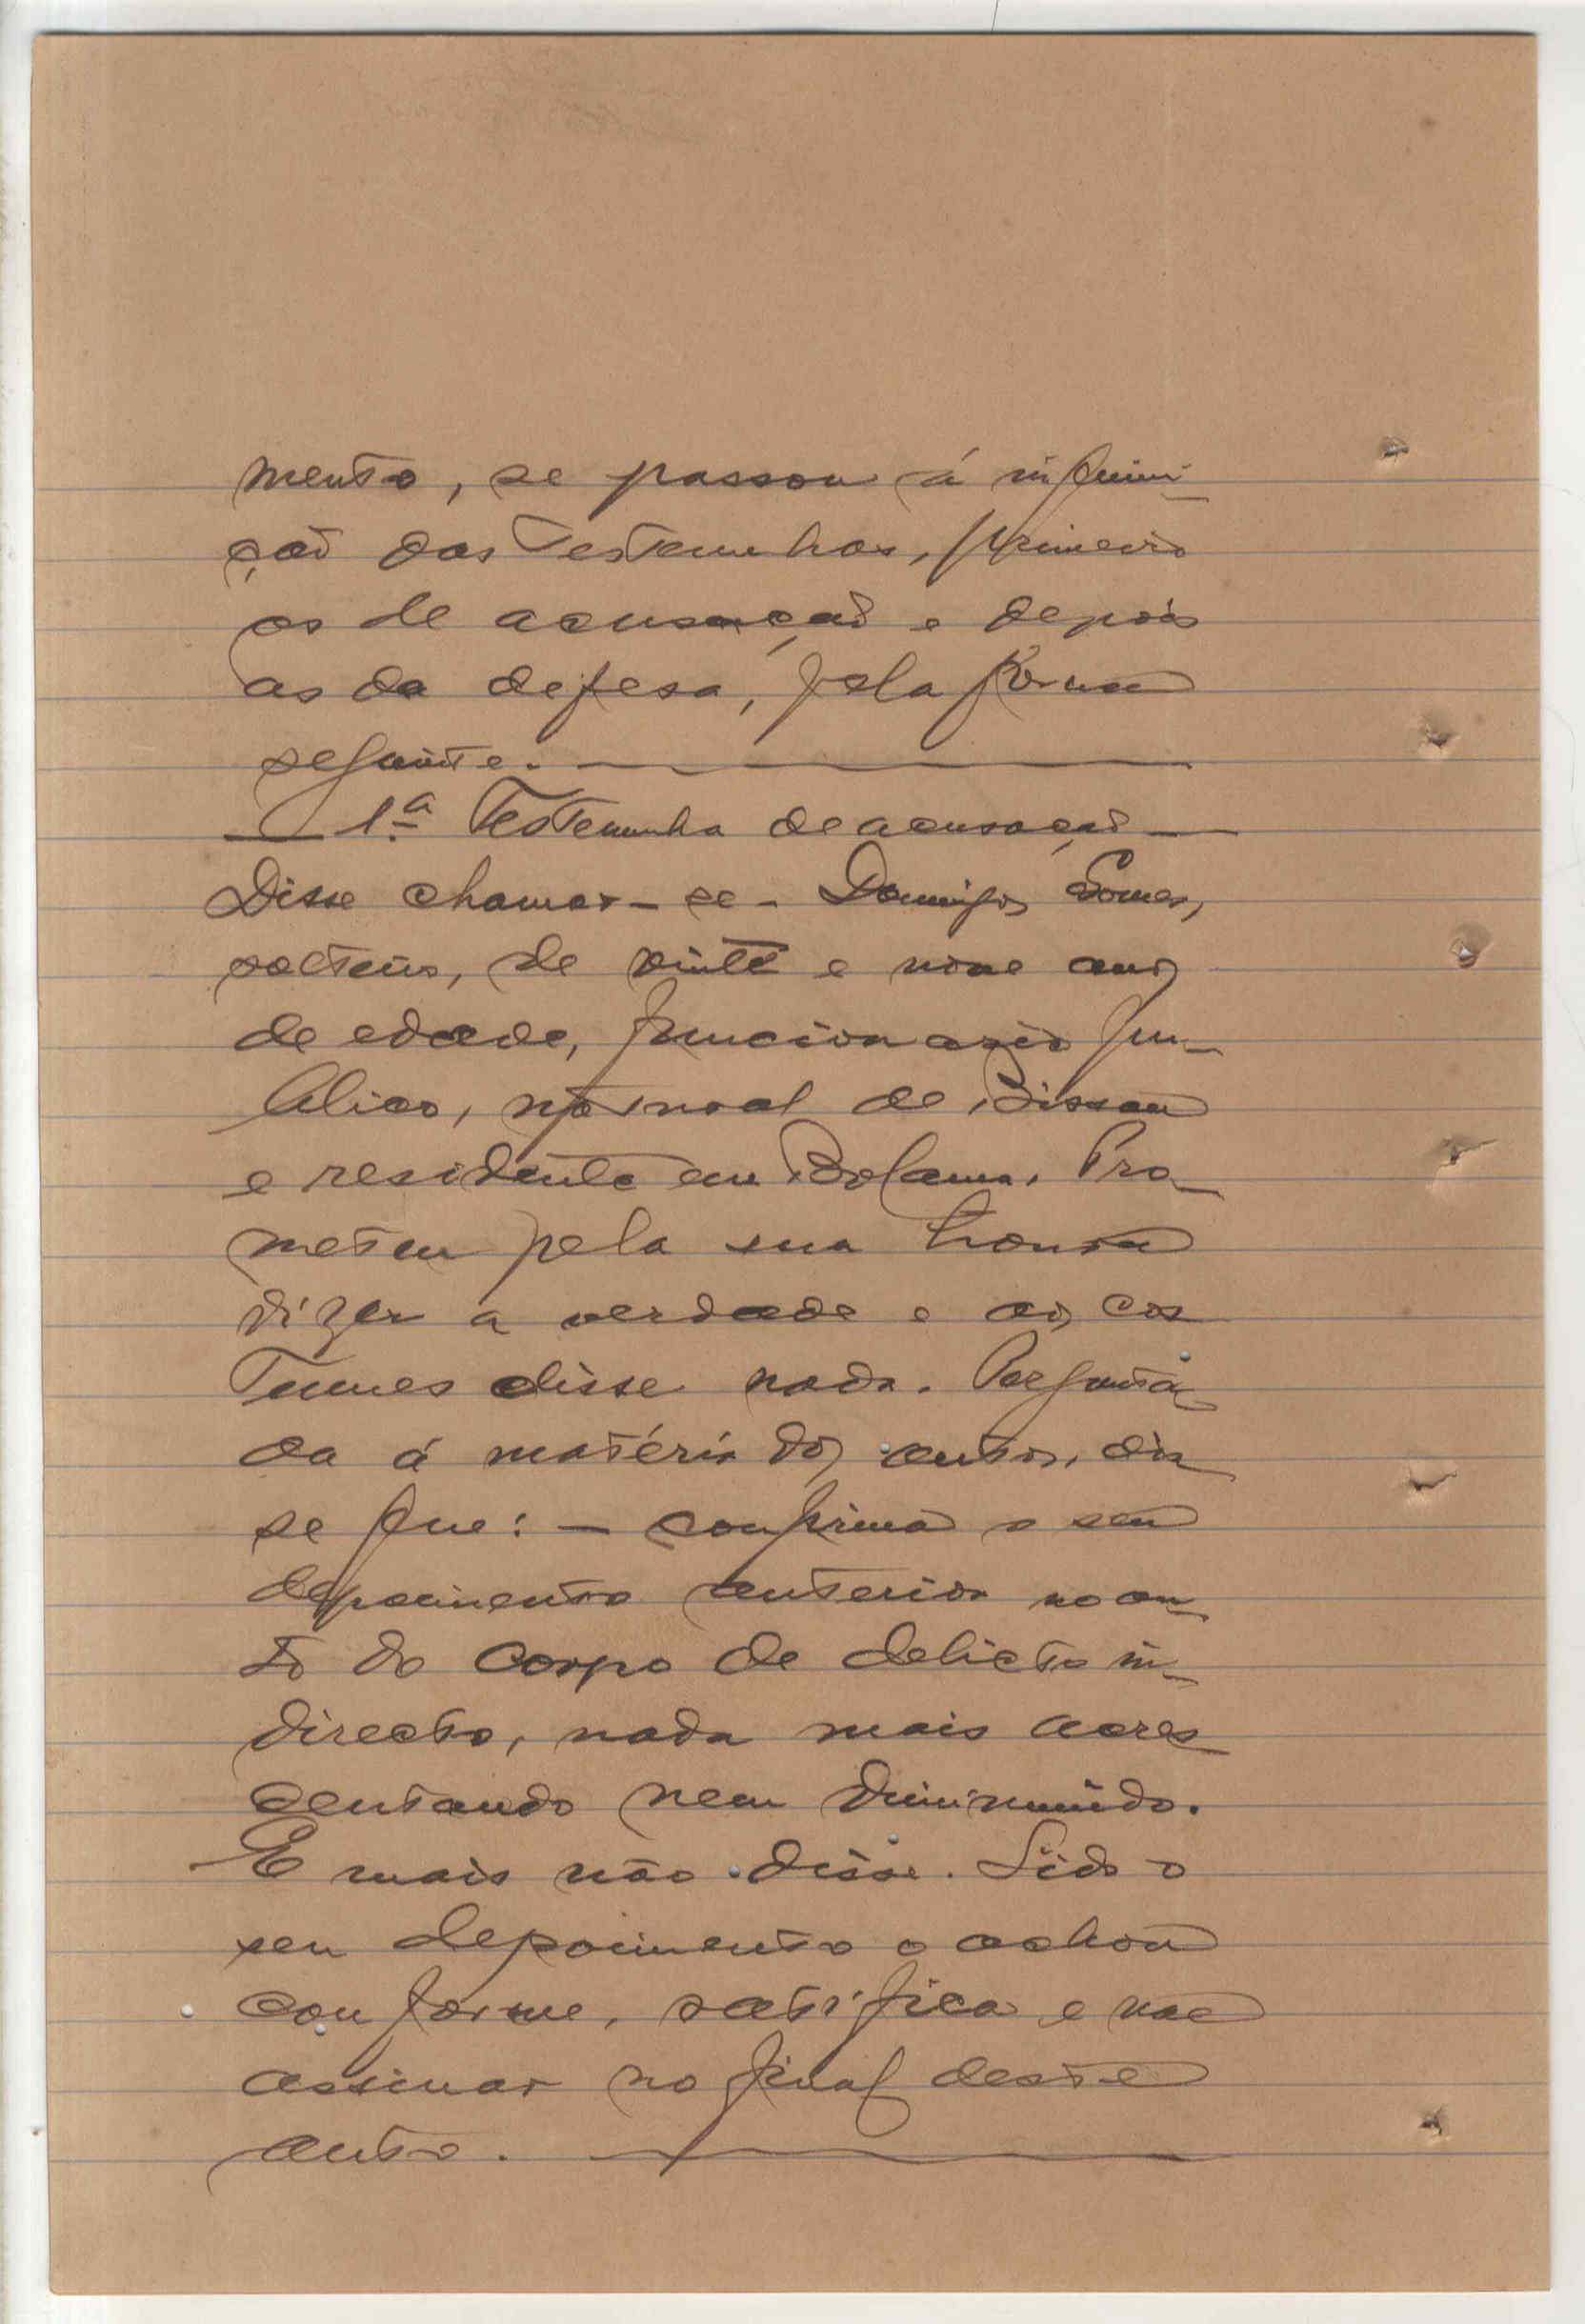 mento, se passou á inquiri-
ção das testemunhas, primeiro
as de acusação e depois
as da defesa, pela forma
seguinte.
— 1.ª Testemunha de acusação —
Disse chamar-se - Domingos Gomes,
solteiro, de vinte e nove anos
de edade, funcionario pu-
blico, natural de Bissau
e residente em Bolama. Pro-
meteu pela sua honra
dizer a verdade e aos cos
tumes disse nada. Pergunta-
da á matéria dos autos, dis
se que: — confirma o seu
depoimento anterior no au-
to do corpo de delicto in-
directo, nada mais acres
centando nem diminuindo.
E mais não disse. Lido o
seu depoimento o achou
conforme, ratifica e vae
assinar no final deste
auto.